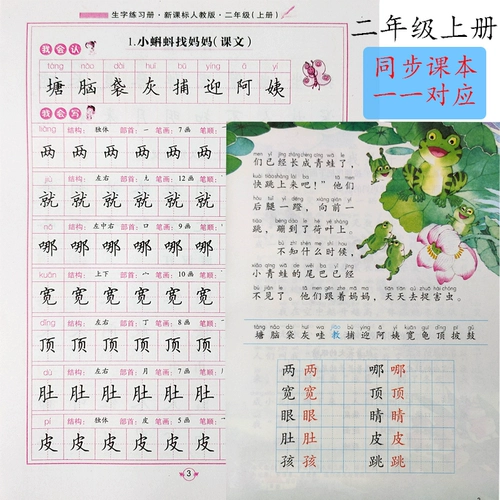 生字练习册·新课标人教版·二年级(上册)
二年级上册
同步课本
一一对应
我会认
1.小蝌蚪找妈妈(课文)
táng nǎo dài huī bǔ yíng ā yí
塘 脑 袋 灰 捕 迎 阿 姨
我会写
liǎng 结构: 独体 部首: 一 笔画: 7画 笔顺:
两 两 两 两 两 两
jiù 结构: 左右 部首: 尢 笔画: 12画 笔顺:
就 就 就 就 就 就
nǎ 结构: 左中右 部首: 口 笔画: 9画 笔顺:
哪 哪 哪 哪 哪 哪
kuān 结构: 上下 部首: 宀 笔画: 10画 笔顺:
宽 宽 宽 宽 宽 宽
dǐng 结构: 左右 部首: 丁 笔画: 8画 笔顺:
顶 顶 顶 顶 顶 顶
dù 结构: 左右 部首: 月 笔画: 7画 笔顺:
肚 肚 肚 肚 肚 肚
pí 结构: 独体 部首: 皮 笔画: 5画 笔顺:
皮 皮 皮 皮 皮 皮
3
们已经长成青蛙了,
快跳上来吧!”他们
后腿一蹬,向前一
跳,蹦到了荷叶上。
不知什么时候,
小青蛙的尾巴已经
不见了。他们跟着妈妈,天天去捉害虫。
塘脑袋灰哇教捕迎阿姨宽龟顶披鼓
两 两 哪 哪
宽 宽 顶 顶
眼 眼 睛 睛
肚 肚 皮 皮
孩 孩 跳 跳